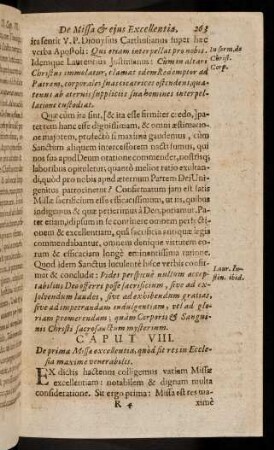 De Missa & ejus Excellentia. 263
ita sensit V. P. Dionysius Carthusianus super hæc
verba Apostoli: Qui etiam interpellat pro nobis.
Idemque Laurentius Justinianus: Cum in altari
Christus immolatur, clamat idem Redemptor ad
Patrem, corporales suas cicatrices ostendens, quatenus
ab æternis suppliciis sua homines interpellatione
custodiat.
In serm. de
Christ.
Corp.
Quæ cum ita sint, & ita esse firmiter credo,
patrem hunc esse cogitemus, & omni æstimatione
majorem, profectò si maxima gaudemus, cùm
Sanctum aliquem intercessorem nacti sumus, qui
nos sua apud Deum oratione commendet, nostrisq;
laboribus opituletur, quantò meliore ratio exultandi,
quòd pro nobis apud æternum Patrem Dei Unigenitus
patrocinetur? Confirmatum jam est satis
Missæ sacrificium esse efficacissimum, ut iis, quibus
indigemus & quæ petierimus à Deo, potiamur.
Patet etiam, id ipsum in se continere omnem perfectionem
& excellentiam, quâ sacrificia antiquæ legis
commendabantur, omnem denique virtutem eorum
& efficaciam longè eminentissima ratione.
Quod idem Sanctus luculenter hisce verbis confirmat
& concludit: Fides perspicuè nullum acceptabilius
Deo offerri posse sacrificium, sive ad exsolvendum
laudes, sive ad exhibendum gratias,
sive ad impetrandam indulgentiam, vel ad gloriam
promerendam, quàm Corporis & Sanguinis
Christi sacrosanctum mysterium.
Laur. Justin.
ibid.
CAPUT VIII.
De prima Missæ excellentia, quòd sit res in Ecclesia
maximè venerabilis.
EX dictis hactenus colligemus variam Missæ
excellentiam: notabilem & dignam multa
consideratione. Sit ergo prima: Missa est res maximè
R 4